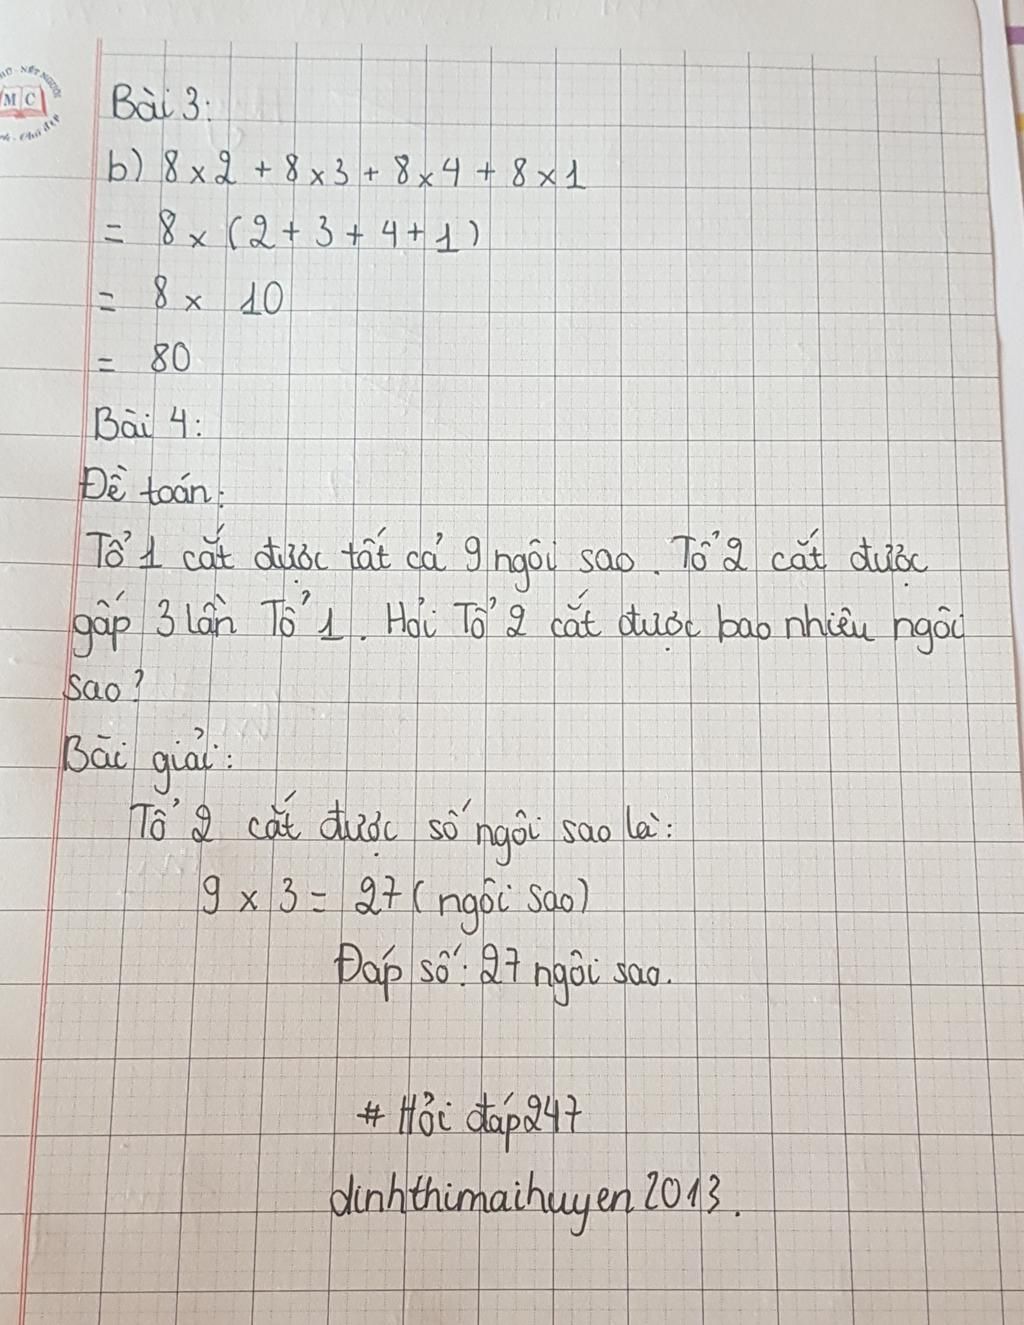 M C
Bài 3:
b) 8 x 2 + 8 x 3 + 8 x 4 + 8 x 1
= 8 x (2 + 3 + 4 + 1)
= 8 x 10
= 80
Bài 4:
Đề toán:
Tổ 1 cắt được tất cả 9 ngôi sao. Tổ 2 cắt được
gấp 3 lần Tổ 1. Hỏi Tổ 2 cắt được bao nhiêu ngôi
sao?
Bài giải:
Tổ 2 cắt được số ngôi sao là:
9 x 3 = 27 (ngôi sao)
Đáp số: 27 ngôi sao.
# Hỏi đáp247
dinhthimaihuyen2013.